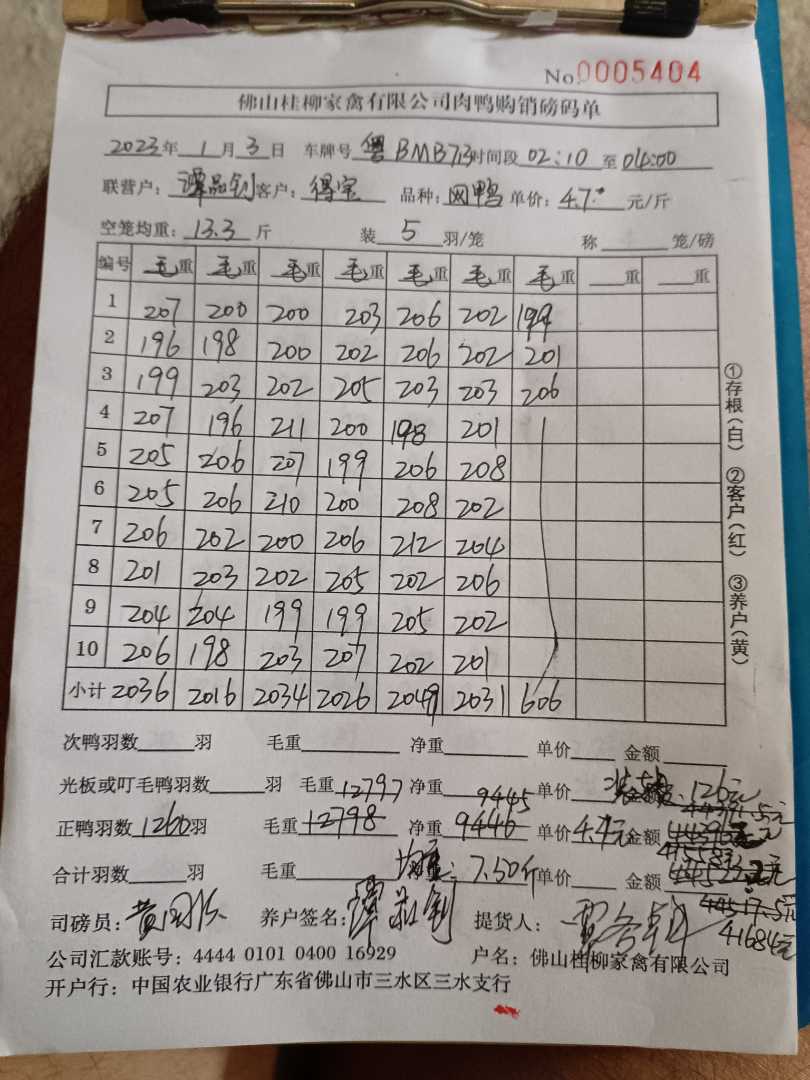 No.0005404
佛山桂柳家禽有限公司肉鸭购销磅码单
2023年 1 月 3 日 车牌号 粤BMB713 时间段 02:10 至 04:00
联营户: 谭品钊 客户: 得宝 品种: 网鸭 单价: 4.7 元/斤
空笼均重: 13.3 斤 装 5 羽/笼 称 笼/磅
编号 毛重 毛重 毛重 毛重 毛重 毛重 毛重 重 重
1 207 200 200 203 206 202 199
2 196 198 200 202 206 202 201
3 199 203 202 205 203 203 206
4 207 196 211 200 198 201
5 205 206 207 199 206 208
6 205 206 210 200 208 202
7 206 202 200 206 212 204
8 201 203 202 205 202 206
9 204 204 199 199 205 202
10 206 198 203 207 202 201
小计 2036 2016 2034 2026 2049 2031 606
①存根(白) ②客户(红) ③养户(黄)
次鸭羽数 羽 毛重 净重 单价 金额
光板或叮毛鸭羽数 羽 毛重 12797 净重 9445 单价 126元
正鸭羽数 1260 羽 毛重 12798 净重 9446 单价 4.4元 金额
合计羽数 羽 毛重 均重: 7.50斤 单价 金额
44517.5元
司磅员: 养户签名: 谭品钊 提货人:
41684元
公司汇款账号: 4444 0101 0400 16929 户名: 佛山桂柳家禽有限公司
开户行: 中国农业银行广东省佛山市三水区三水支行